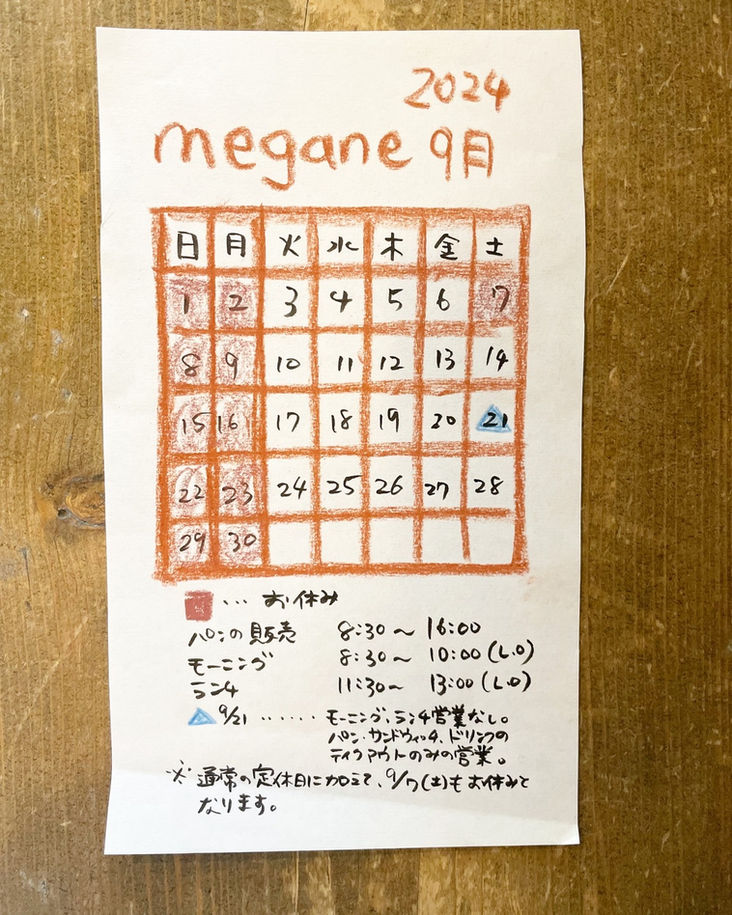 2024
megane 9月
日 月 火 水 木 金 土
1 2 3 4 5 6 7
8 9 10 11 12 13 14
15 16 17 18 19 20 21
22 23 24 25 26 27 28
29 30
… お休み
パンの販売 8:30〜 16:00
モーニング 8:30〜 10:00(L.O)
ランチ 11:30〜 13:00(L.O)
9/21 …… モーニング、ランチ営業なし。
パン・サンドウィッチ、ドリンクの
テイクアウトのみの営業。
※ 通常の定休日に加えて、9/7(土)もお休みと
なります。